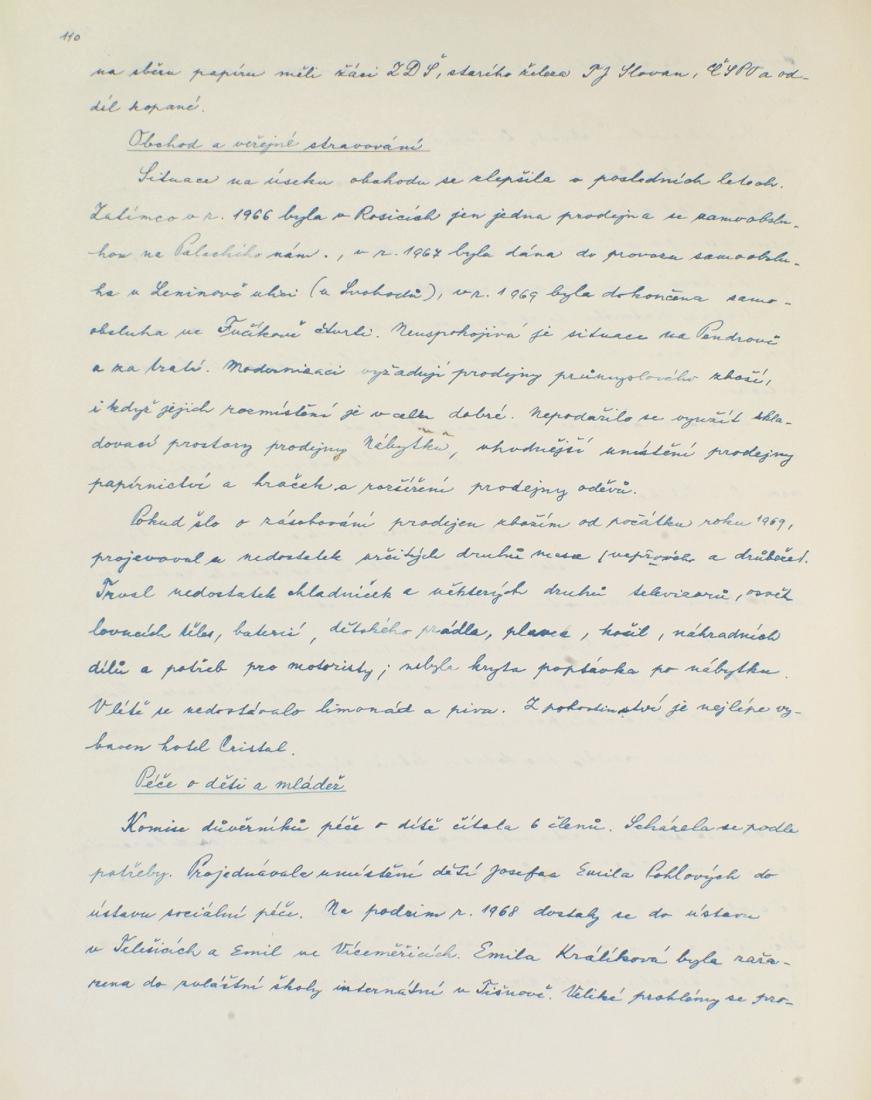 110
na sběru papíru měli žáci ZDŠ, starího železa TJ Slovan, ČSPO a od-
díl kopané.
Obchod a veřejné stravování
Situace na úseku obchodu se zlepšila v posledních letech.
Zatímco v r. 1966 byla v Rosicích jen jedna prodejna se samoobslu-
hou na Palachího nám., v r. 1967 byla dána do provozu samoobslu-
ha v Leninově ulici (u Svobodů), v r. 1969 byla dokončena samo-
obsluha ve Fučíkově čtvrti. Neuspokojivá je situace na Pendrově
a za tratí. Modernizaci vyžadují prodejny průmyslového zboží,
i když jejich rozmístění je v celku dobré. Nepodařilo se využít skla-
dovací prostory prodejny Nábytku, vhodnější umístění prodejny
papírnictví a hraček a rozšíření prodejny oděvů.
Pokud šlo o zásobování prodejen zbožím od počátku roku 1969,
projevoval se nedostatek určitých druhů masa (vepřového a drůbeže).
Trval nedostatek chladniček a některých druhů televizorů, osvět
lovacích těles, baterií, dětského prádla, plavek, košil, náhradních
dílů a potřeb pro motoristy; nebyla kryta poptávka po nábytku.
V létě se nedostávalo limonád a piva. Z pohostinství je nejlépe vy-
baven hotel Cristal.
Péče o děti a mládež
Komise důvěrníků péče o dítě čítala 6 členů. Scházela se podle
potřeby. Projednávala umístění dětí Josefa a Emila Pohlových do
ústavu sociální péče. Na podzim r. 1968 dostaly se do ústavu
v Telešicích a Emil ve Víceměřicích. Emila Králíková byla zařa-
zena do zvláštní školy internátní v Tišnově. Veliké problémy se pro-